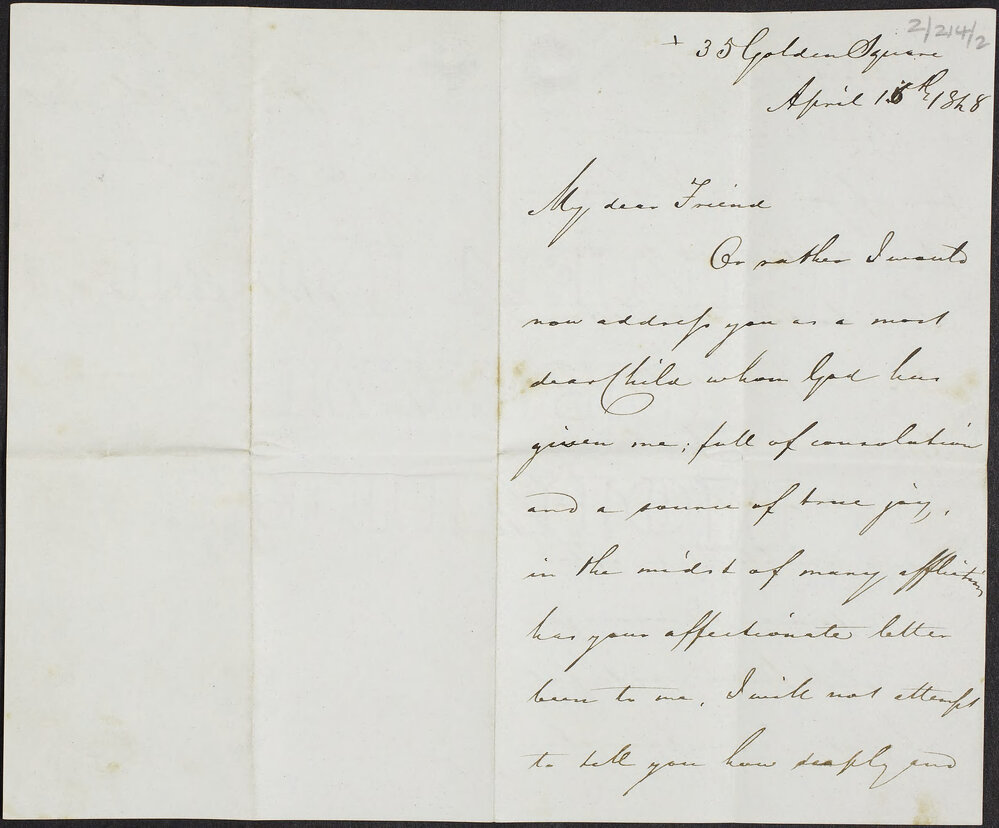 2/214/2
+ 35 Golden Square
April 1th 1848
My dear Friend
Or rather I would
now address you as a most
dear Child whom God has
given me; full of consolation
and a source of true joy,
in the midst of many afflictions
has your affectionate letter
been to me, I will not attempt
to tell you how deeply and